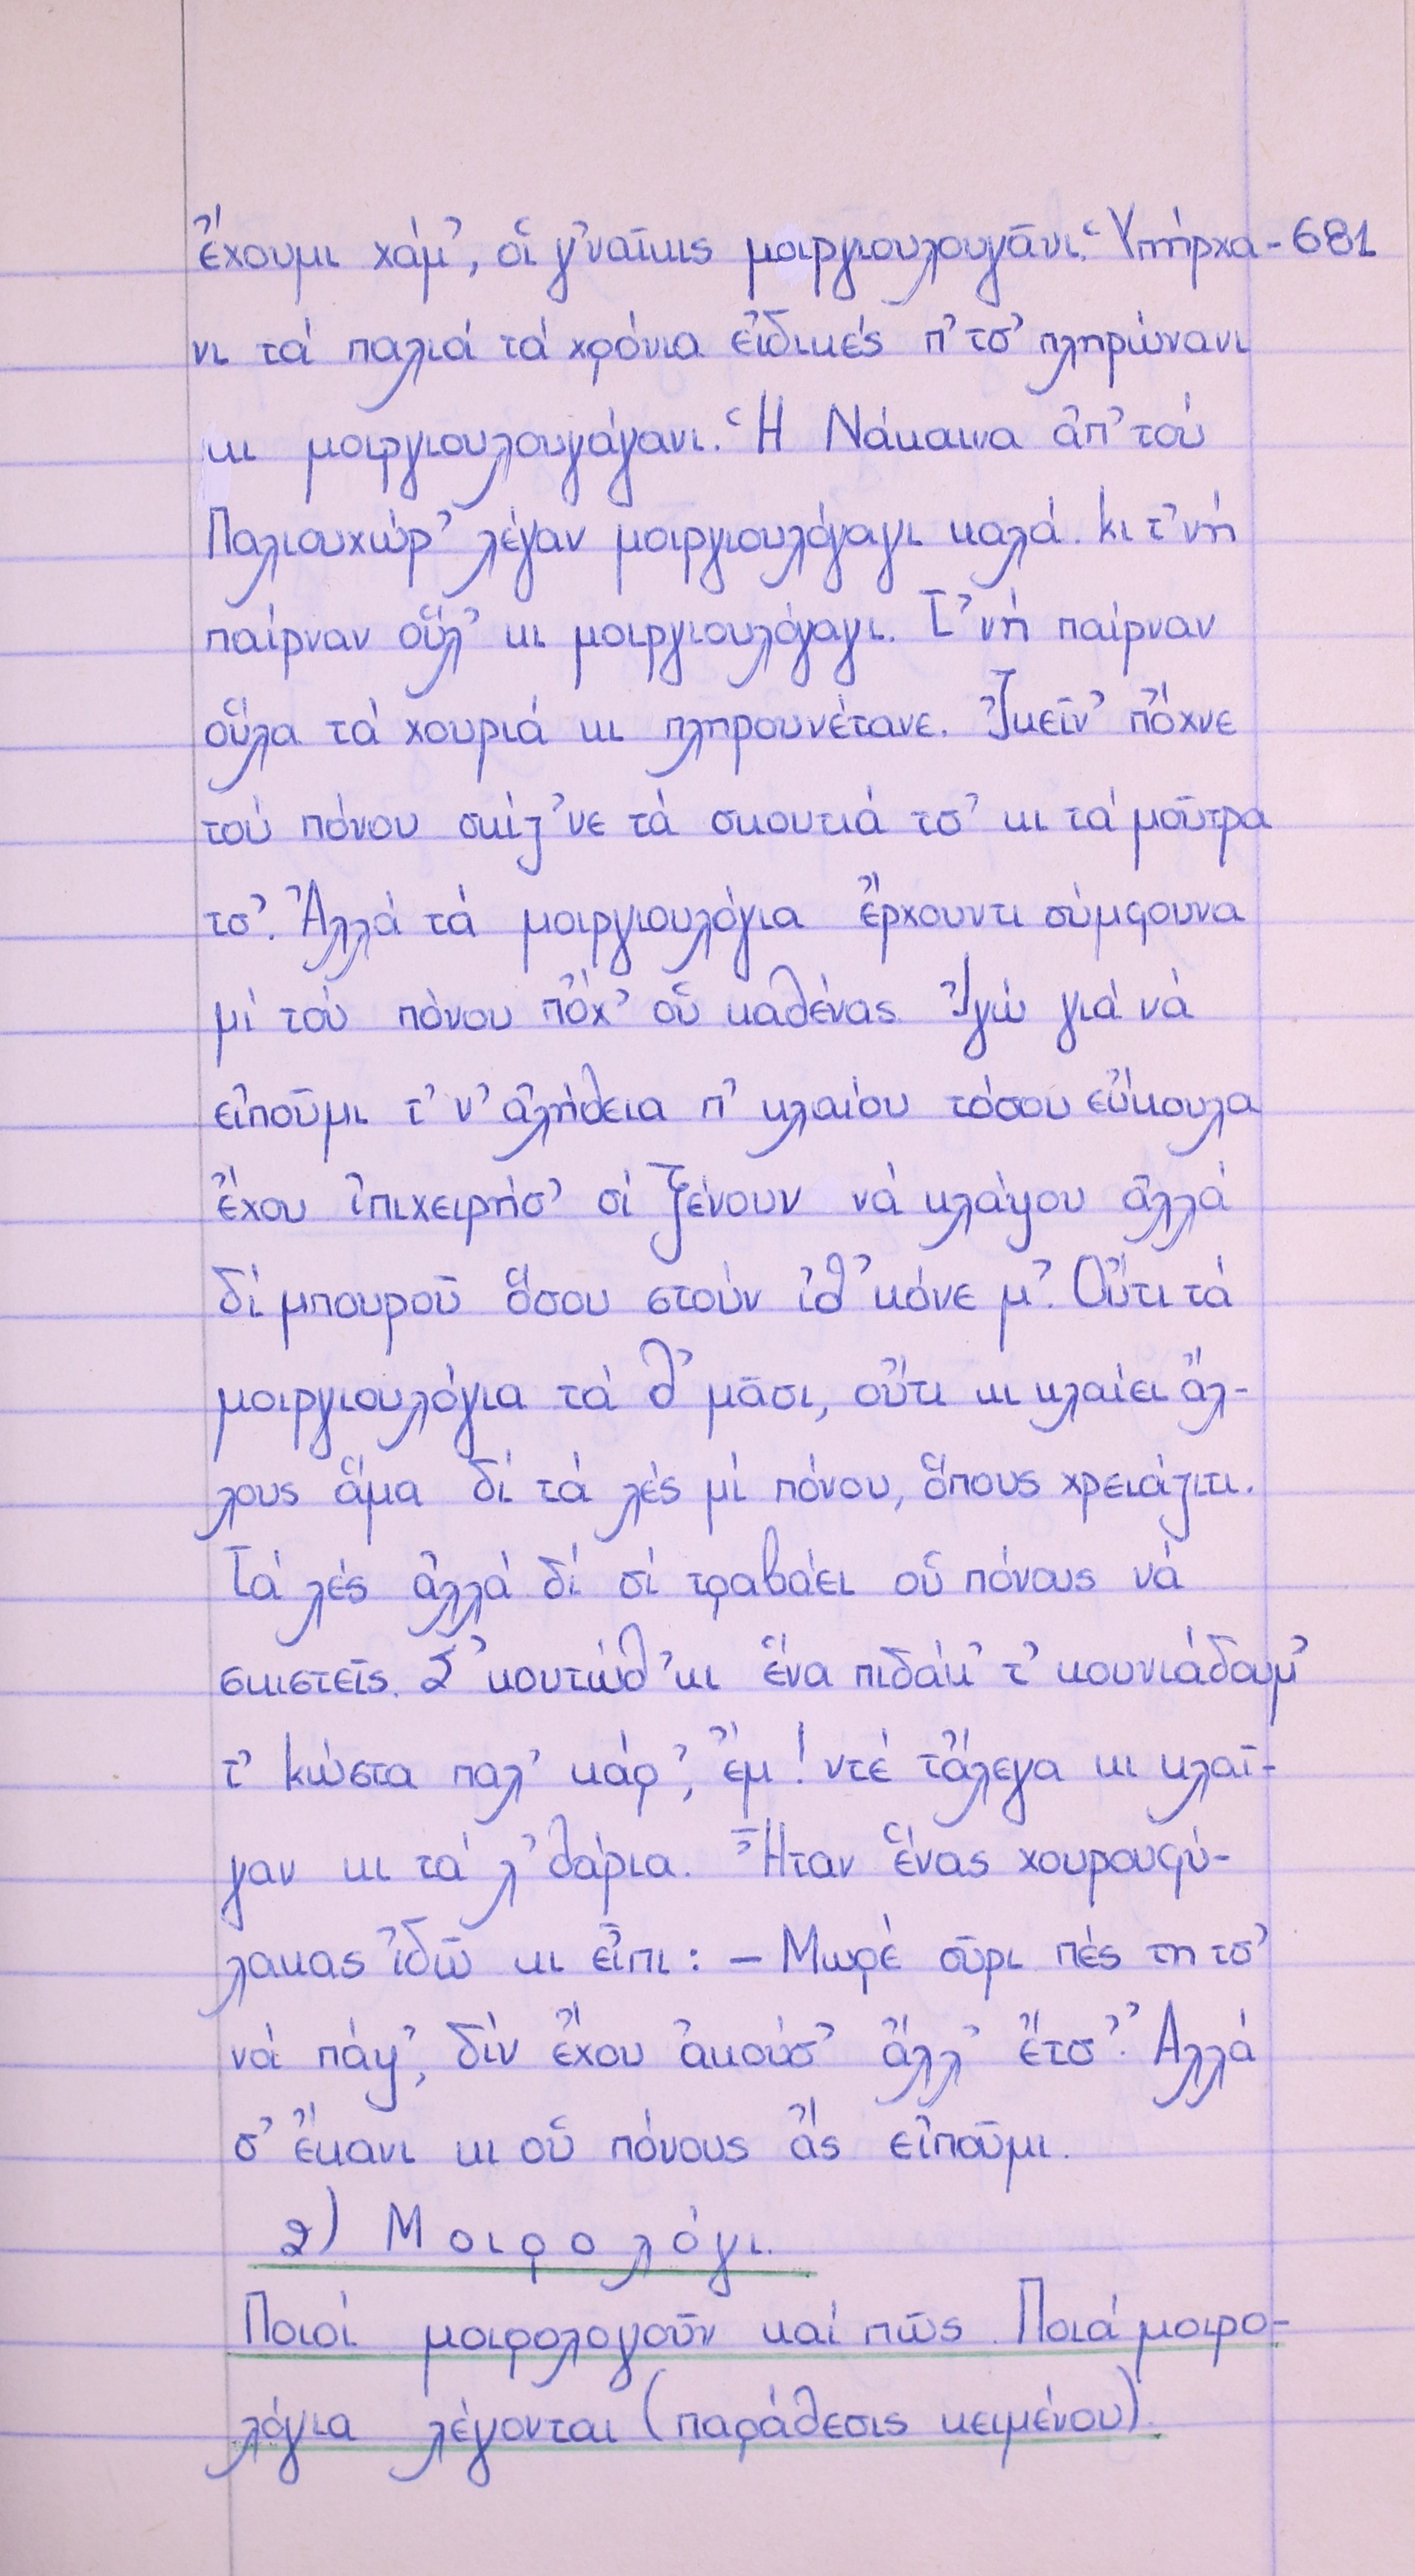 ἔχουμι χάμ', οἱ γ'ναῖκις μοιργιουλουγᾶνι. Ὑπήρχα- 681
νι τά παλιά τά χρόνια εἰδικές π' τσ' πληρώνανι
κι μοιργιουλουγάγανι. Ἡ Νάκαινα ἀπ' τού
Παλιουχώρ' λέγαν μοιργιουλόγαγι καλά. κι τ'νή
παίρναν οὕλ' κι μοιργιουλόγαγι. Τ'νή παίρναν
οὕλα τά χουριά κι πληρουνέτανε. Ἰκεῖν' πὄχνε
τού πόνου σκίζ'νε τά σκουτιά τσ' κι τά μοῦτρα
τσ'. Ἀλλά τά μοιργιουλόγια ἔρχουντι σύμφουνα
μί τού πόνου πὄχ' οὑ καθένας Ἰγώ γιά νά
εἰποῦμι τ'ν' ἀλήθεια π' κλαίου τόσου εὔκουλα
ἔχου ἰπιχειρήσ' σί ξένουν νά κλάψου ἀλλά
δί μπουροῦ ὅσου στούν ἰθ'κόνε μ'. Οὔτι τά
μοιργιουλόγια τά θ'μᾶσι, οὔτι κι κλαίει ἄλ-
λους ἅμα δί τά λές μί πόνου, ὅπους χρειάζιτι.
Τά λές ἀλλά δί σί τραβάει οὑ πόνους νά
σκιστεῖς. Σ'κουτώθ'κι ἕνα πιδάκ' τ' κουνιάδουμ'
τ' Κώστα παλ'κάρ', ἔμ! ντέ τἄλεγα κι κλαῖ-
γαν κι τά λ'θάρια. Ἦταν ἕνας χουρουφύ-
λακας ἰδῶ κι εἶπι: – Μωρέ σῦρι πές τη τσ'
νά πάψ', δίν ἔχου ἀκούσ' ἄλλ' ἔτσ'. Ἀλλά
σ' ἔκανι κι οὑ πόνους ἄς εἰποῦμι.
2) Μοιρολόγι.
Ποιοί μοιρολογοῦν καί πῶς. Ποιά μοιρο-
λόγια λέγονται (παράθεσις κειμένου).